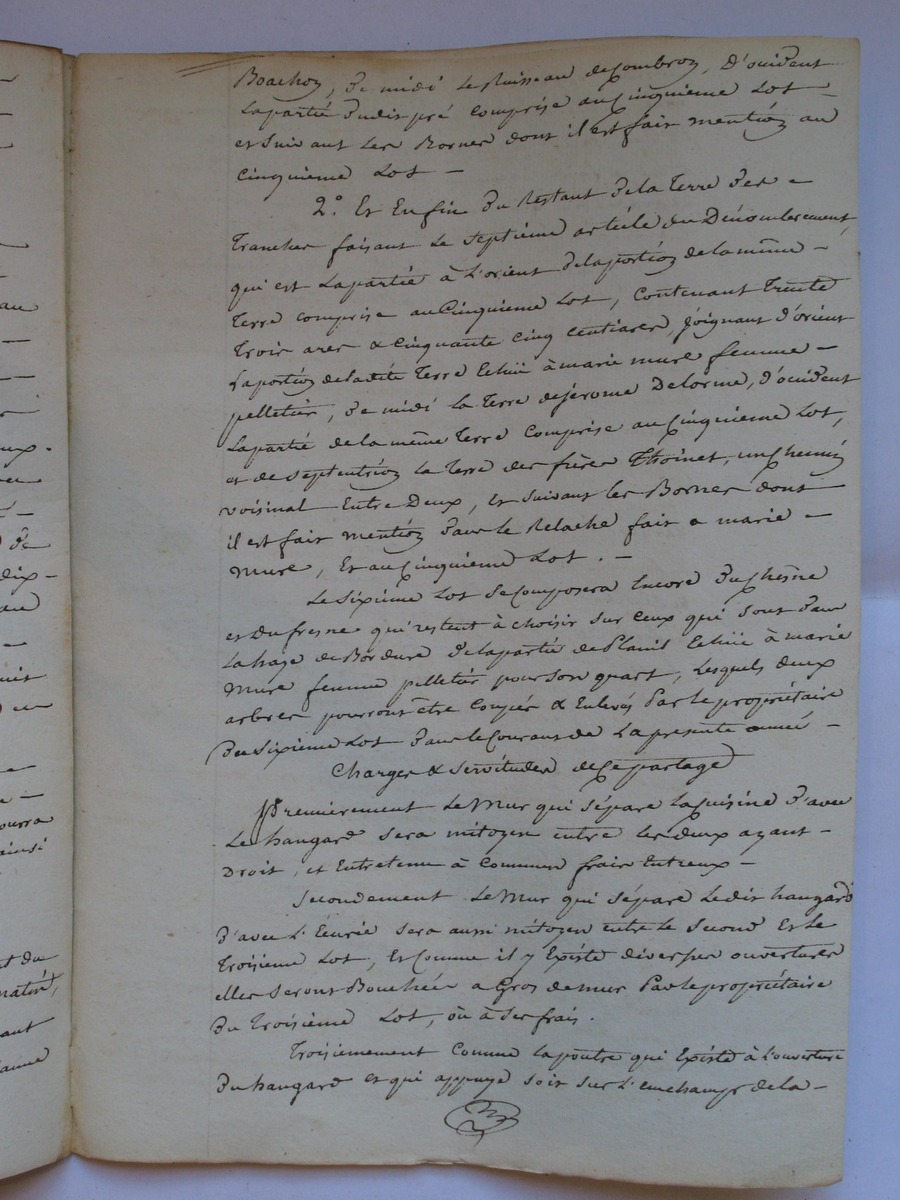 Boachon, de midi le Ruisseau de Combron, d'occident
la partie dudit pré comprise au Cinquieme Lot
et suivant les Bornes dont il est fait mention au
Cinquieme Lot —
2.° Et Enfin du Restant de la Terre des
Tranches faisant le septiéme article du Dénombrement,
qui est la partie à l'orient de la portion de la même —
Terre comprise au Cinquieme Lot, contenant Trente
Trois ares & Cinquante Cinq Centiares, joignant d'orient
la portion de ladite Terre Echüe à marie mure femme —
pelletier, de midi la Terre de jérome Delorme, d'occident
la partie de la même Terre comprise au Cinquieme Lot,
et de septentrion la Terre des frères Thoinet, un Chemin
voisinal Entre Deux, et suivant les Bornes dont
il est fait mention dans le Relaché fait a marie —
mure, Et au Cinquieme Lot. —
Le sixiéme Lot se Composera Encore du Chesne
et du fresne qui restent à choisir sur ceux qui sont dans
la haye de Bordure de la partie de Echüe à marie
mure femme pelletier pour son quart, Lesquels deux
arbres pourront être Coupés & Enlevés Par le propriétaire
du Sixieme Lot dans le Courant de la presente année —
Charges & Servitudes de Ce partage
Premièrement Le Mur qui sépare la cuisine d'avec
Le hangard sera mitoyen entre les deux ayant —
Droit, et Entretenu à Commun frais Entreux —
Secondement Le Mur qui sépare ledit hangard
d'avec l'Ecurie sera aussi mitoyen entre le second Et le
Troisieme Lot, Et Comme il y Existe diverses ouvertures
elles seront Bouchées a Gros de mur Par le propriétaire
du Troisième Lot, où à ses frais.
Troisiemement Comme la poutre qui Existe à l'ouverture
du hangard et qui appuye soit sur l' de la —